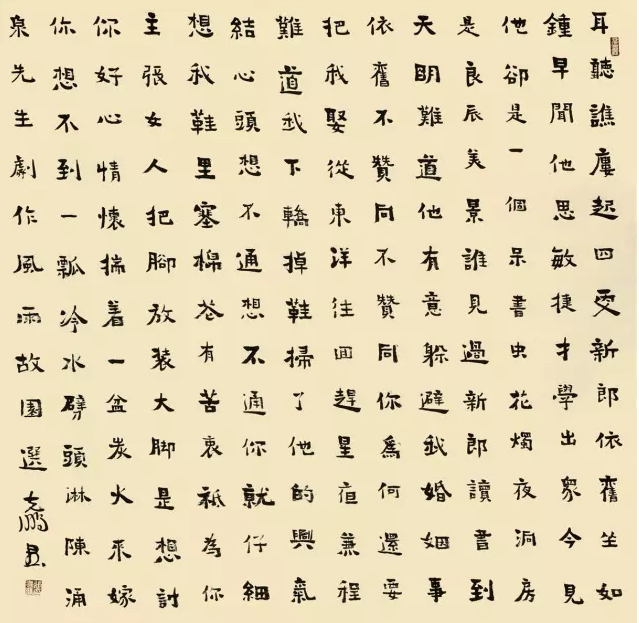 耳聽譙廔起四更新郎依舊坐如
鍾早聞他思敏捷才學出眾今見
他卻是一個呆書虫花燭夜洞房
是良辰美景誰見過新郎讀書到
天明難道他有意躲避我婚姻事
依舊不贊同不贊同你為何還要
把我娶從東洋往回趕星夜兼程
難道我下轎掉鞋掃了他的興氣
結心頭想不通想不通你就仔細
想我鞋里塞棉花有苦衷祗為你
主張女人把腳放裝大脚是想討
你好心情懷揣着一盆炭火來嫁
你想不到一瓢冷水劈頭淋陳涌
泉先生劇作風雨故園選